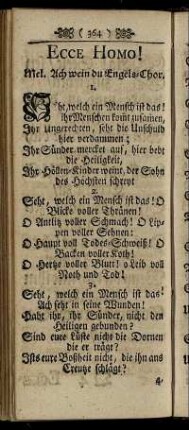 ( 364 )
ECCE HOMO!
Mel. Ach wein du Engels-Chor.
1.
Sehe, welch ein Mensch ist das!
ihr Menschen komt zusamen,
Ihr ungerechten, seht die Unschuld
hier verdammen;
Ihr Sünder mercket auf, hier bebt
die Heiligkeit,
Ihr Höllen-Kinder weint, der Sohn
des Höchsten schreyt
2.
Seht, welch ein Mensch ist das! O
Blicke voller Thränen!
O Antlitz voller Schmach! O Lip-
pen voller Sehnen:
O Haupt voll Todes-Schweiß! O
Backen voller Koth!
O Hertze voller Blut! o Leib voll
Noth und Tod!
3.
Seht, welch ein Mensch ist das!
Ach seht in seine Wunden!
Habt ihr, ihr Sünder, nicht den
Heiligen gebunden?
Sind eure Lüste nicht die Dornen
die er trägt?
Ists eure Boßheit nicht, die ihn ans
Creutze schlägt?
4.